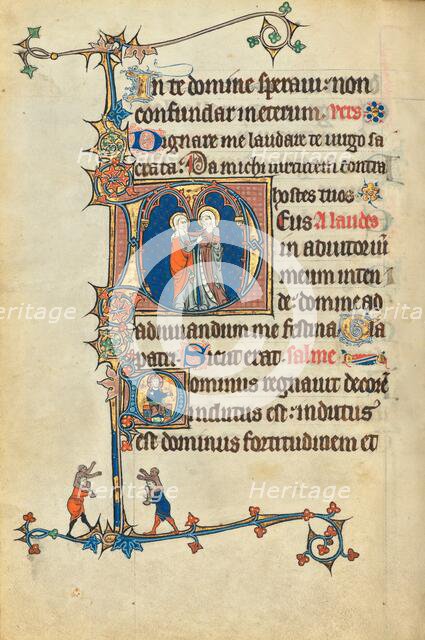 In te domine speraui: non
confundar in eternum. vers
Dignare me laudare te uirgo sa
crata: Da michi uirtutem contra
hostes tuos
Deus A laudes
in adiutoriu
meum inten
de: domine ad
adiuuandum me festina Gla
patri. Sicut erat. salme
Dominus regnauit decore
indutus est: indutus
est dominus fortitudinem et
Heritage
Heritage
Heritage
Heritage
Heritage
Heritage
Heritage
Heritage